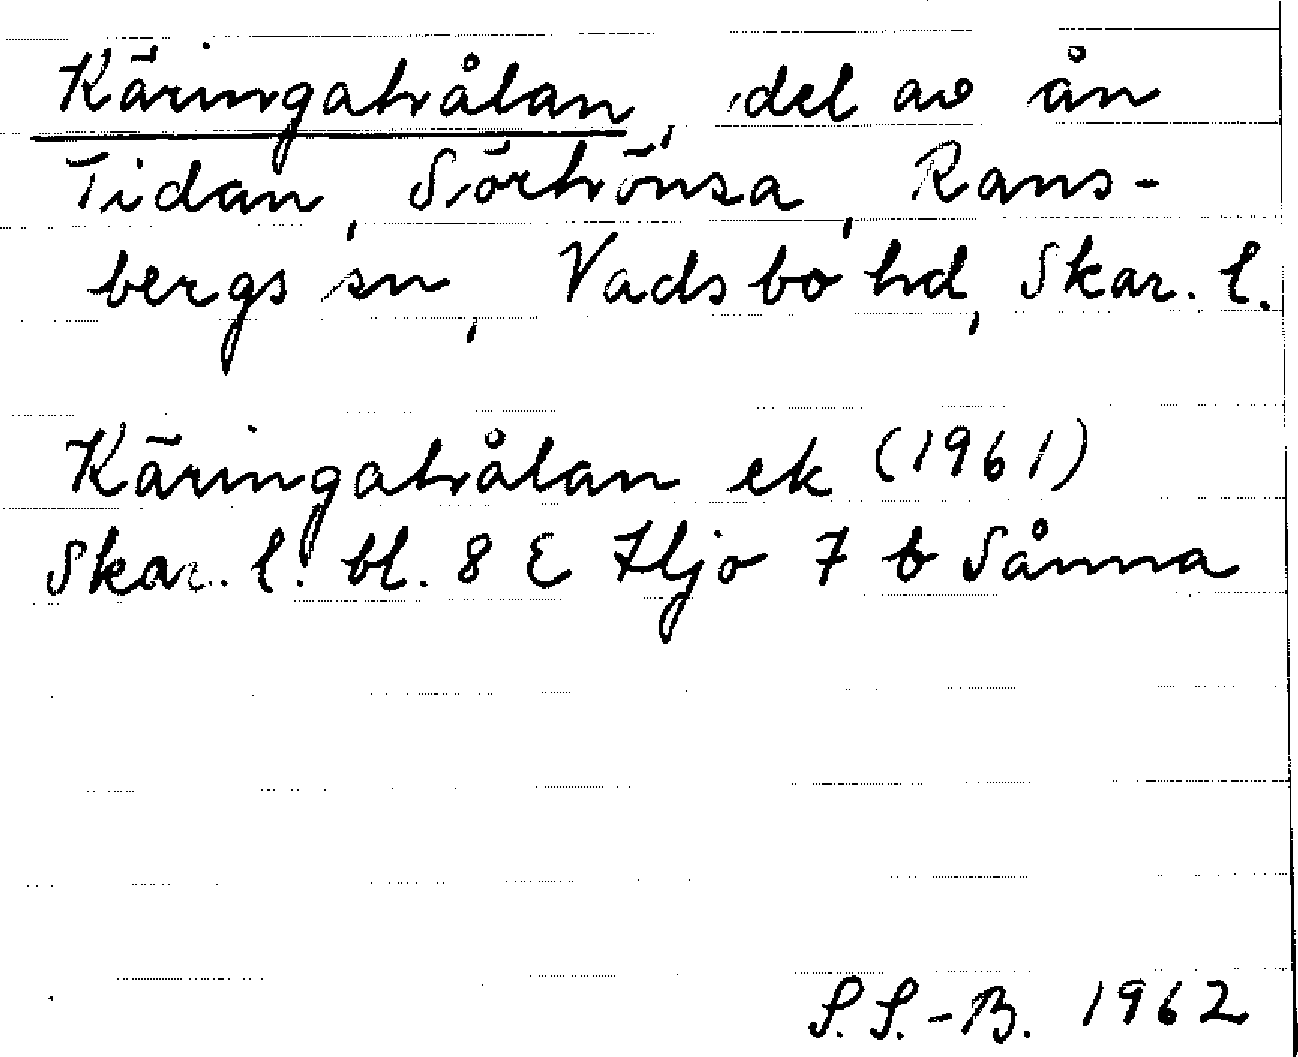 Käringahålan, del av ån
Tidan, Sörhönsa, Rans-
bergs sn, Vadsbo hd, Skar. l.
Käringahålan ek (1961)
Skar. l. bl. 8 E Hjo 7 b Sånna
S. S.-B. 1962